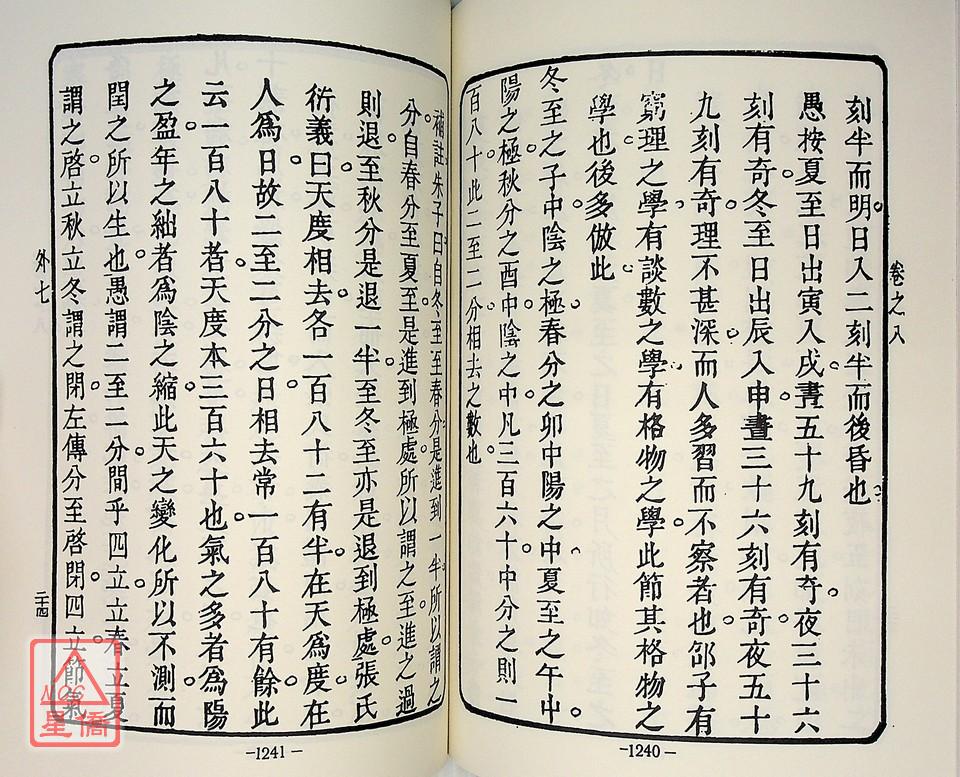 卷之八
刻半而明日入二刻半而後昏也
愚按夏至日出寅入戌晝五十九刻有奇夜三十六
刻有奇冬至日出辰入申晝三十六刻有奇夜五十
九刻有奇理不甚深而人多習而不察者也邵子有
窮理之學有談數之學有格物之學此節其格物之
學也後多倣此
冬至之子中陰之極春分之卯中陽之中夏至之午中
陽之極秋分之酉中陰之中凡三百六十中分之則一
百八十此二至二分相去之數也
-1240-
補註朱子曰自冬至至春分是進到一半所以謂之
分自春分至夏至是進到極處所以謂之至進之過
則退至秋分是退一半至冬至亦是退到極處張氏
衍義曰天度相去各一百八十二有半在天爲度在
人爲日故二至二分之日相去常一百八十有餘此
云一百八十者天度本三百六十也氣之多者爲陽
之盈年之絀者爲陰之縮此天之變化所以不測而
閏之所以生也愚謂二至二分間乎四立立春立夏
謂之啓立秋立冬謂之閉左傳分至啓閉四立節氣
外七
二十四
-1241-
NCC
星僑